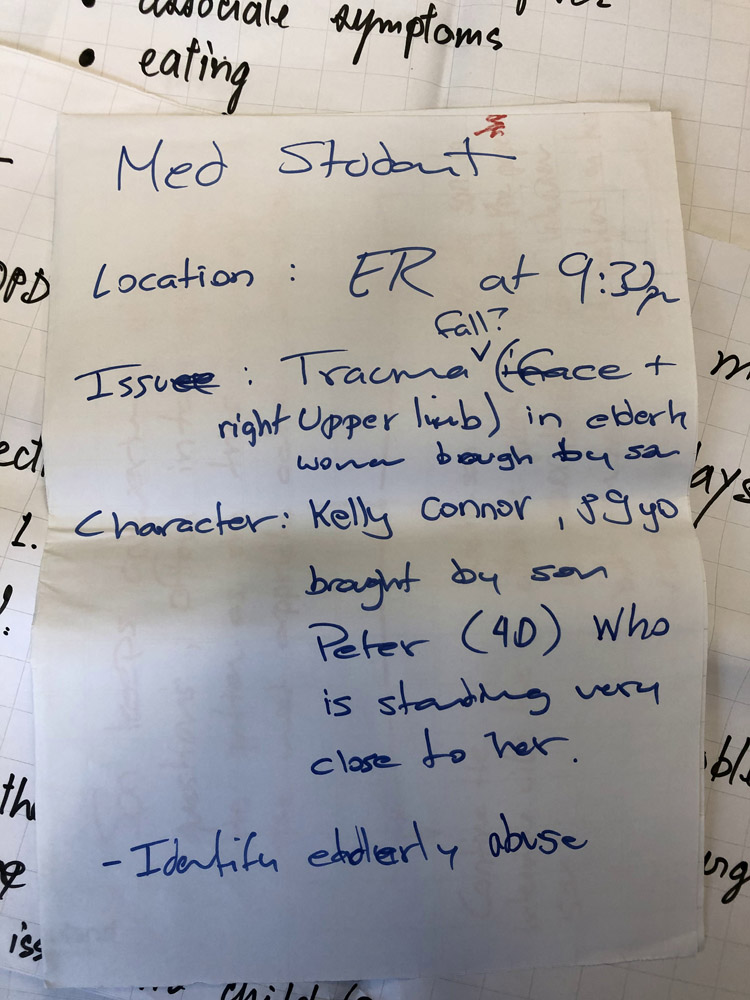 • associate symptoms
• eating
Med Student
Location : ER at 9:30pm
fall?
Issue : Trauma (face +
right Upper limb) in elderly
woman brough by son
Character: Kelly Connor , 89 yo
brought by son
Peter (40) Who
is standing very
close to her.
- Identify edderly abuse
OPD
1.
iss
child